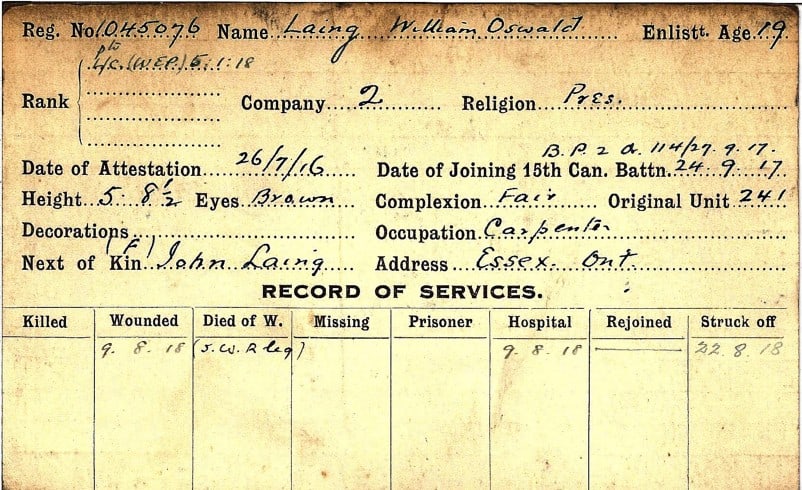 Reg. No. 1045076 Name Laing William Oswald Enlistt. Age 19
Pte
L/c. (W.E.P.) 5.1.18
Rank Company 2 Religion Pres.
B. P. 2 O. 114/27. 9. 17.
Date of Attestation 26/7/16 Date of Joining 15th Can. Battn. 24. 9. 17.
Height 5. 8½ Eyes Brown Complexion Fair Original Unit 241
Decorations Occupation Carpenter
Next of Kin (F) John Laing Address Essex. Ont.
RECORD OF SERVICES.
Killed Wounded Died of W. Missing Prisoner Hospital Rejoined Struck off
9. 8. 18 (S.W.R leg) 9. 8. 18 22. 8. 18